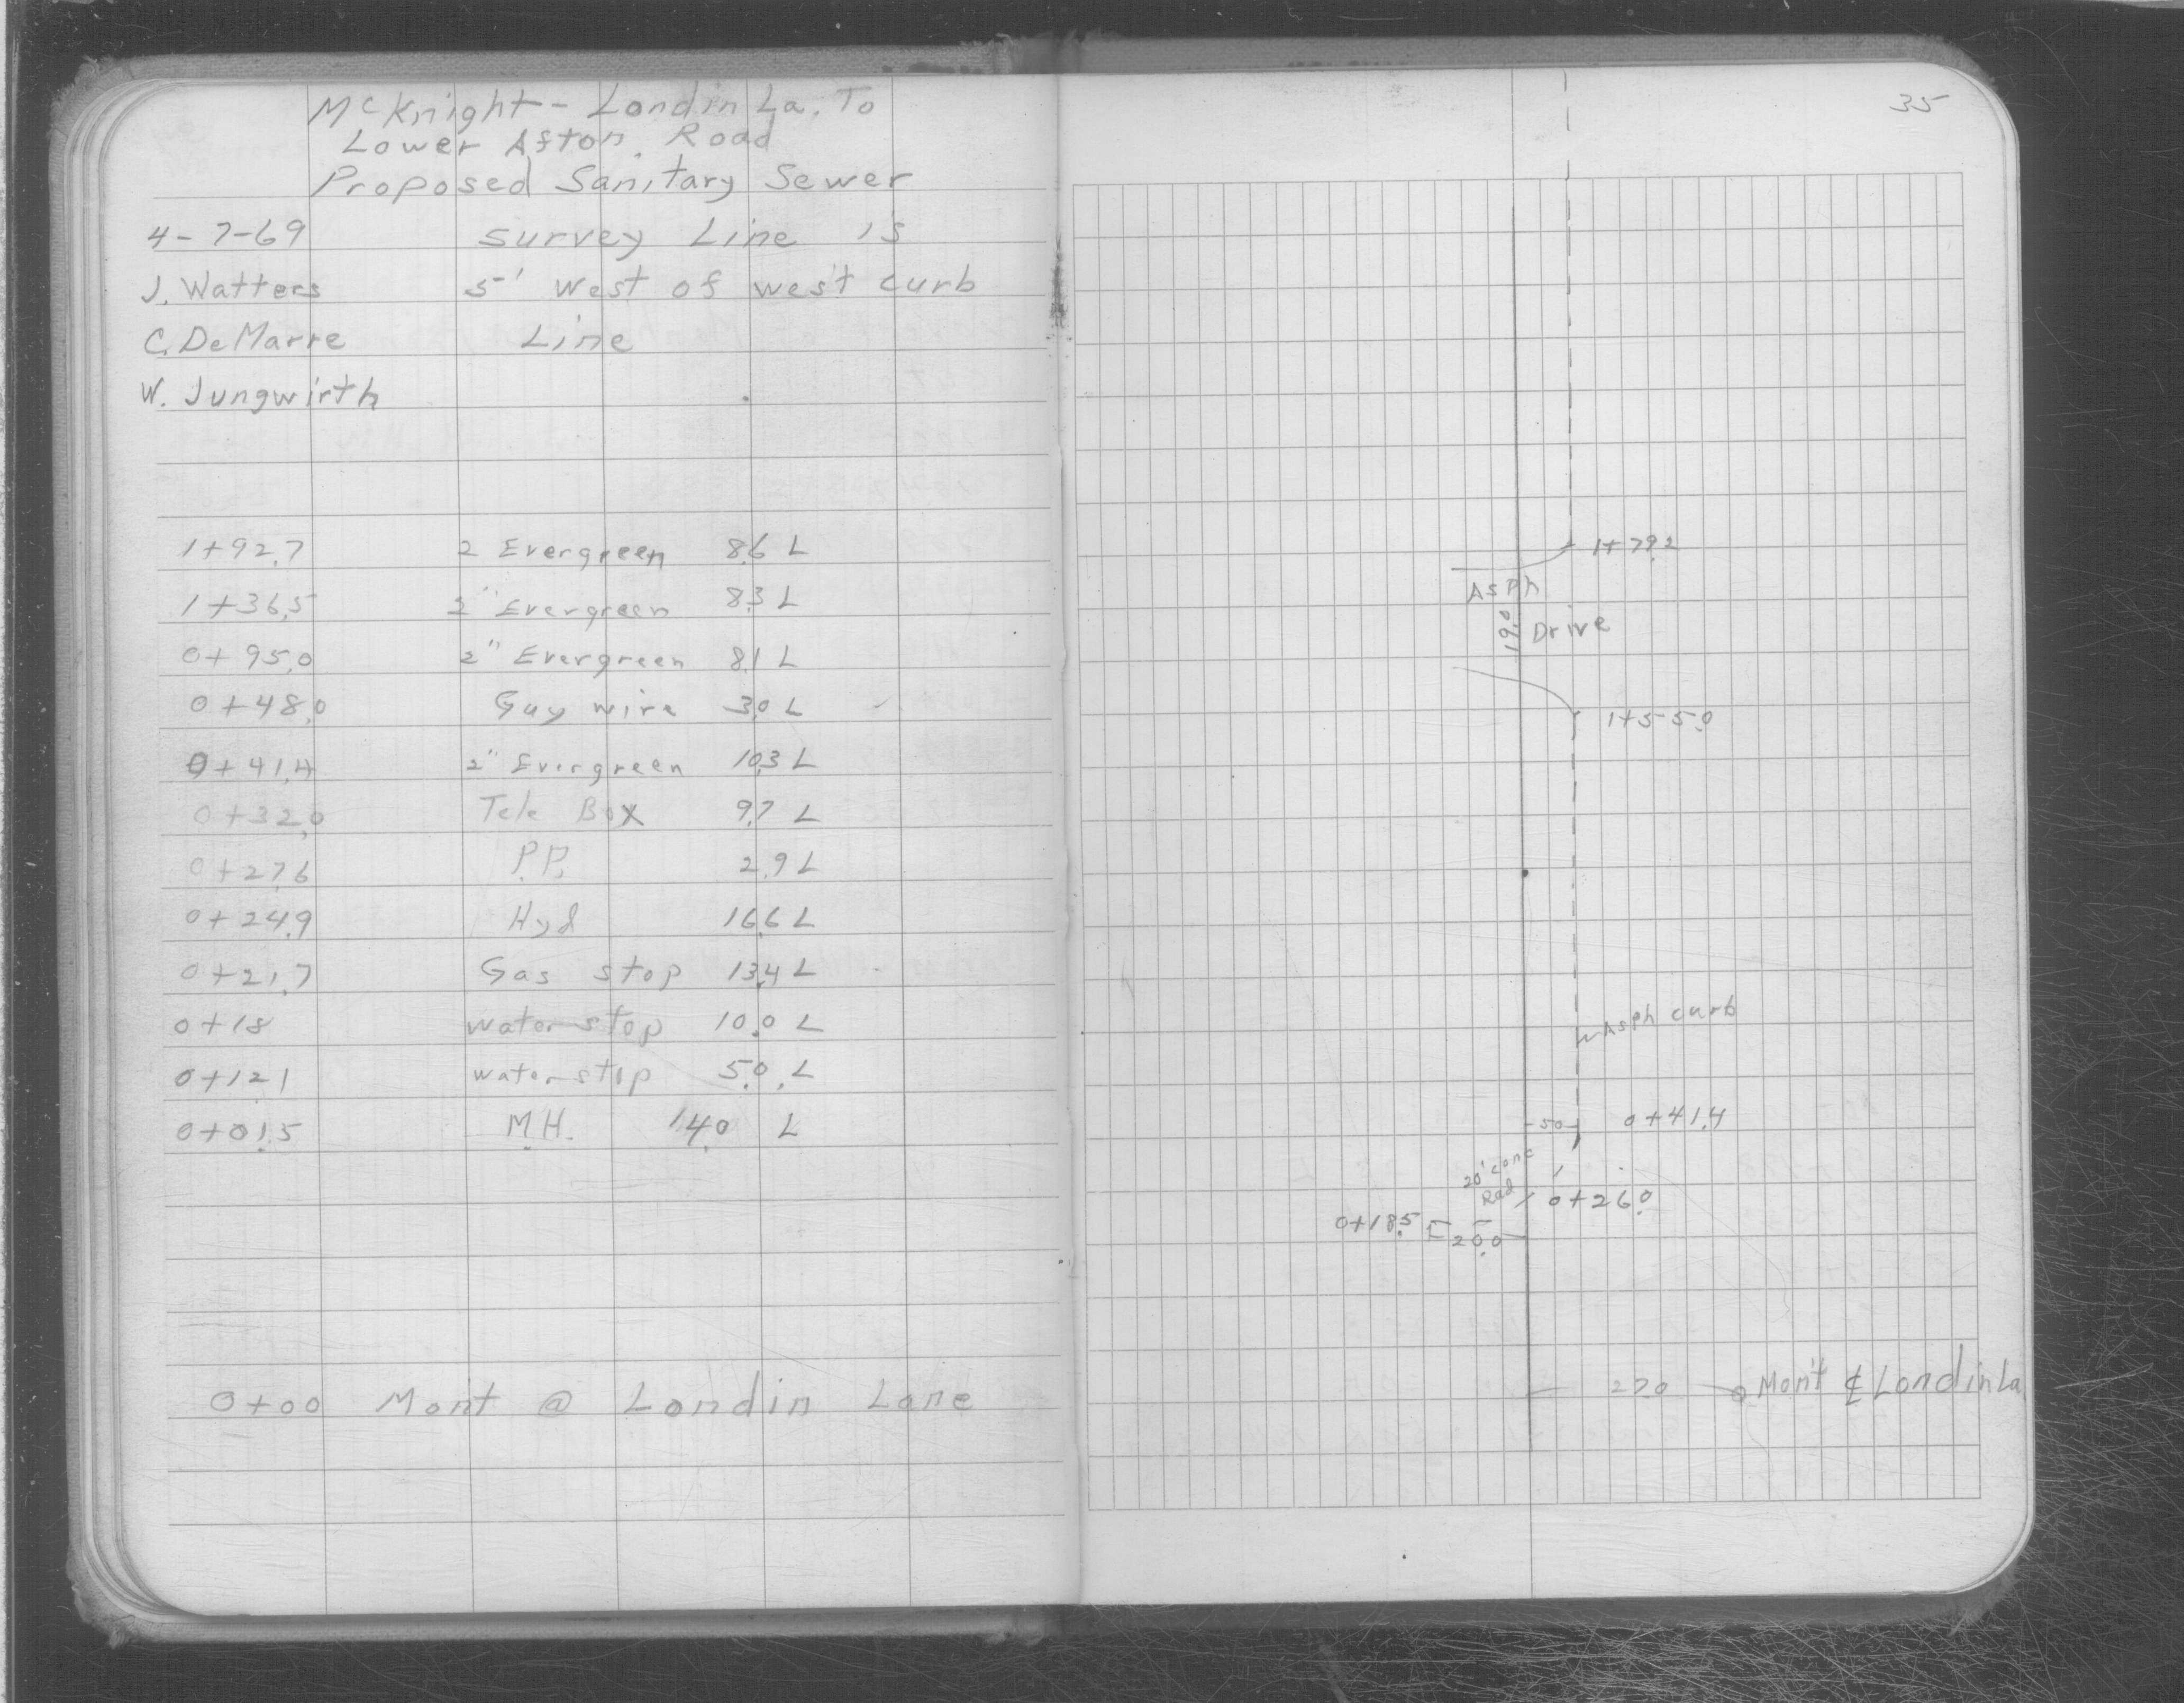 McKnight - Londin La. To
Lower Afton Road
Proposed Sanitary Sewer
4-7-69 Survey Line is
J. Watters 5' west of west curb
C. DeMarre Line
W. Jungwirth
1+92.7 2 Evergreen 8.6 L
1+36.5 2" Evergreen 8.3 L
0+95.0 2" Evergreen 8.1 L
0+48.0 Guy wire 3.0 L
0+41.4 2" Evergreen 10.3 L
0+32.0 Tele Box 9.7 L
0+27.6 P.P. 2.9 L
0+24.9 Hyd 16.6 L
0+21.7 Gas stop 13.4 L
0+18 water stop 10.0 L
0+12.1 water stop 5.0 L
0+01.5 M.H. 14.0 L
0+00 Mon't @ Londin Lane
35
1+79.2
Asph
19.0 Drive
1+55.0
Asph curb
5.0 0+41.4
20' conc
Rad 0+26.0
0+18.5 20.0
27.0 Mon't ℄ Londin La